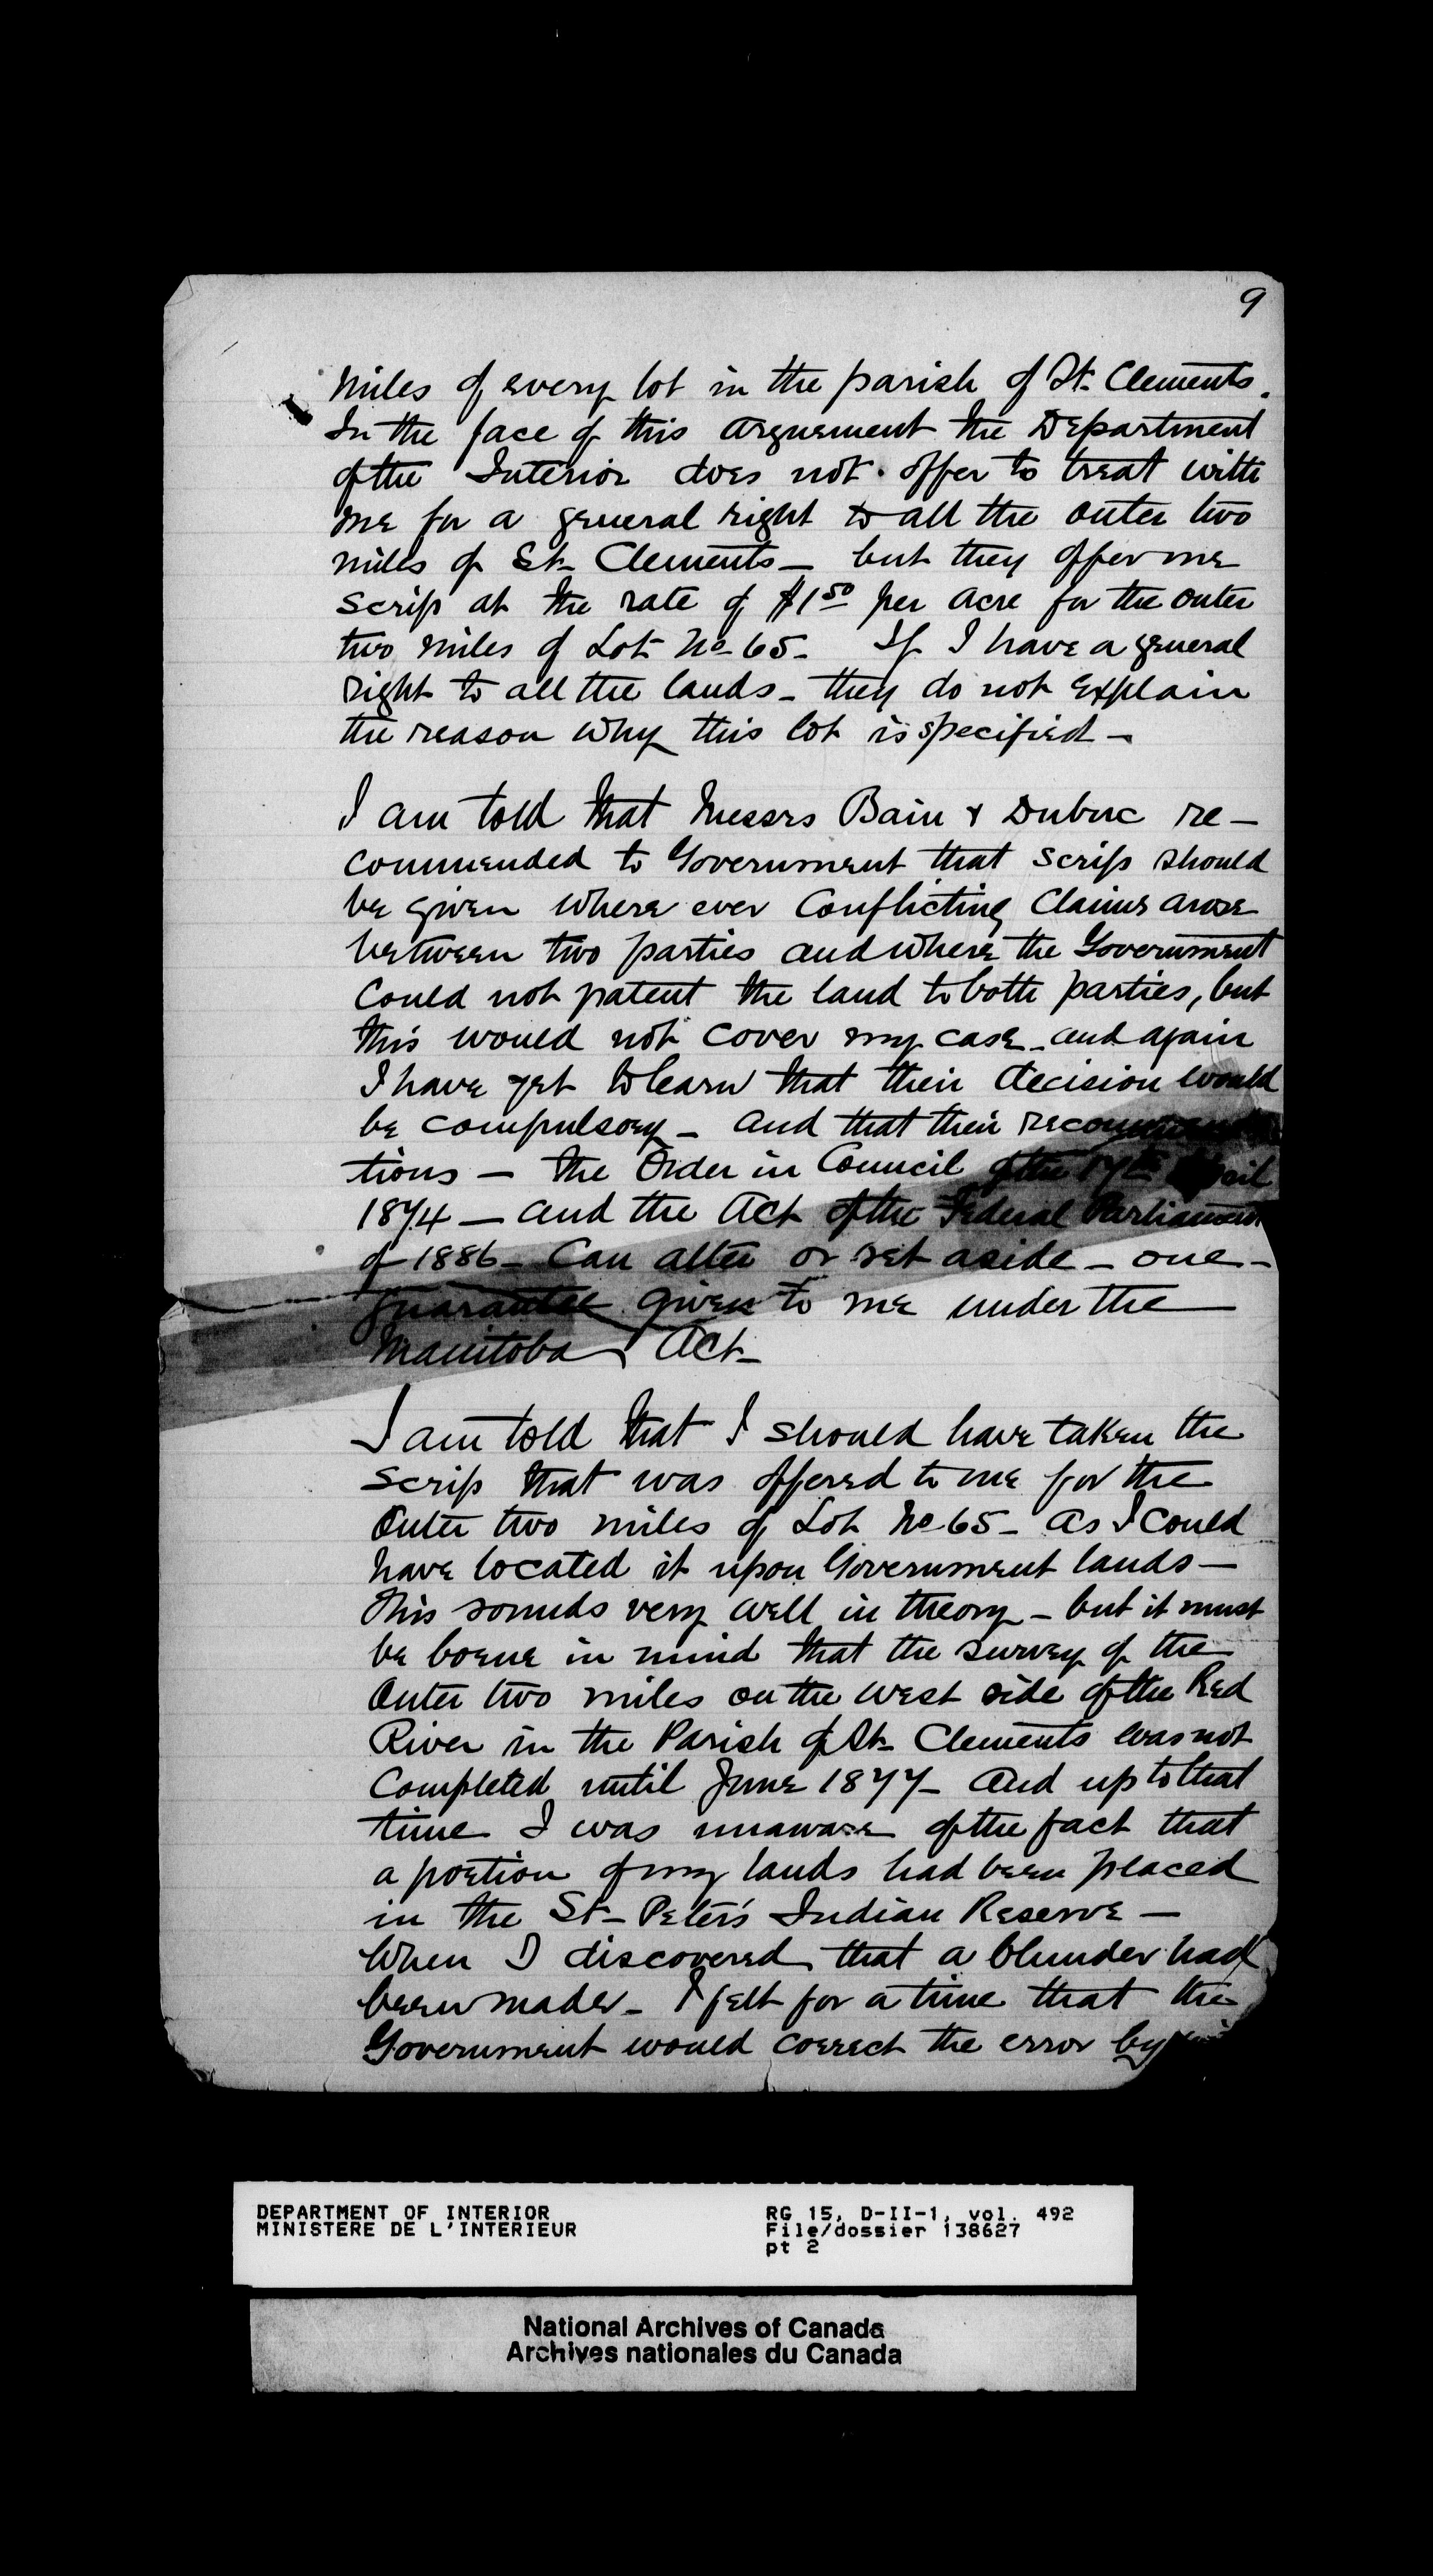 9
Miles of every lot in the parish of St. Clements.
In the face of this arguement the Department
of the Interior does not offer to treat with
me for a general right to all the outer two
miles of St. Clements — but they offer me
scrip at the rate of $1 50 per acre for the outer
two miles of Lot No 65 - If I have a general
right to all the lands - they do not explain
the reason why this lot is specified -
I am told that Messrs Bain & Dubuc re-
commended to Government that scrip should
be given where ever conflicting claims arose
between two parties and where the Government
could not patent the land to both parties, but
this would not cover my case - and again
I have yet to learn that their decision would
be compulsory - and that their recommenda
tions — the Order in Council of the 17th April
1874 — and the Act of the Federal Parliament
of 1886 - can alter or set aside - one -
guarantee given to me under the
Manitoba Act -
I am told that I should have taken the
scrip that was offered to me for the
outer two miles of Lot No 65 - as I could
have located it upon Government lands —
This sounds very well in theory - but it must
be borne in mind that the survey of the
outer two miles on the west side of the Red
River in the Parish of St. Clements was not
completed until June 1877 - and up to that
time I was unaware of the fact that
a portion of my lands had been placed
in the St - Peter's Indian Reserve —
When I discovered that a blunder had
been made - I felt for a time that the
Government would correct the error by
DEPARTMENT OF INTERIOR
MINISTERE DE L'INTERIEUR
RG 15, D-II-1, vol. 492
File/dossier 138627
pt 2
National Archives of Canada
Archives nationales du Canada